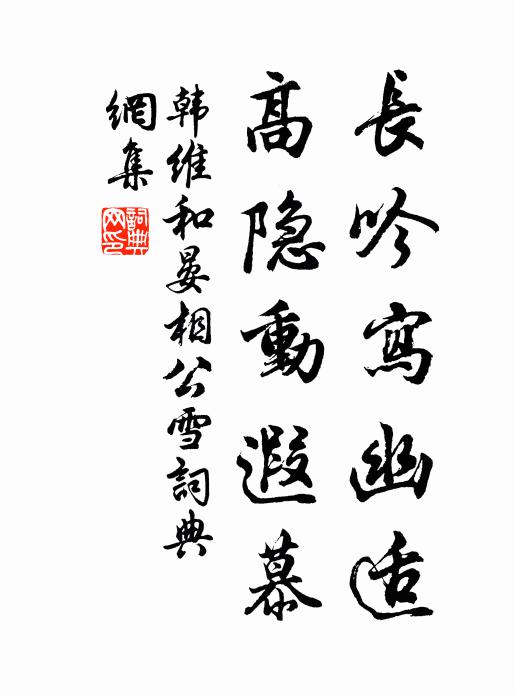 長吟寫幽适
高隐動遐慕
韩維和晏相公雪詞典
網集
詞典網印